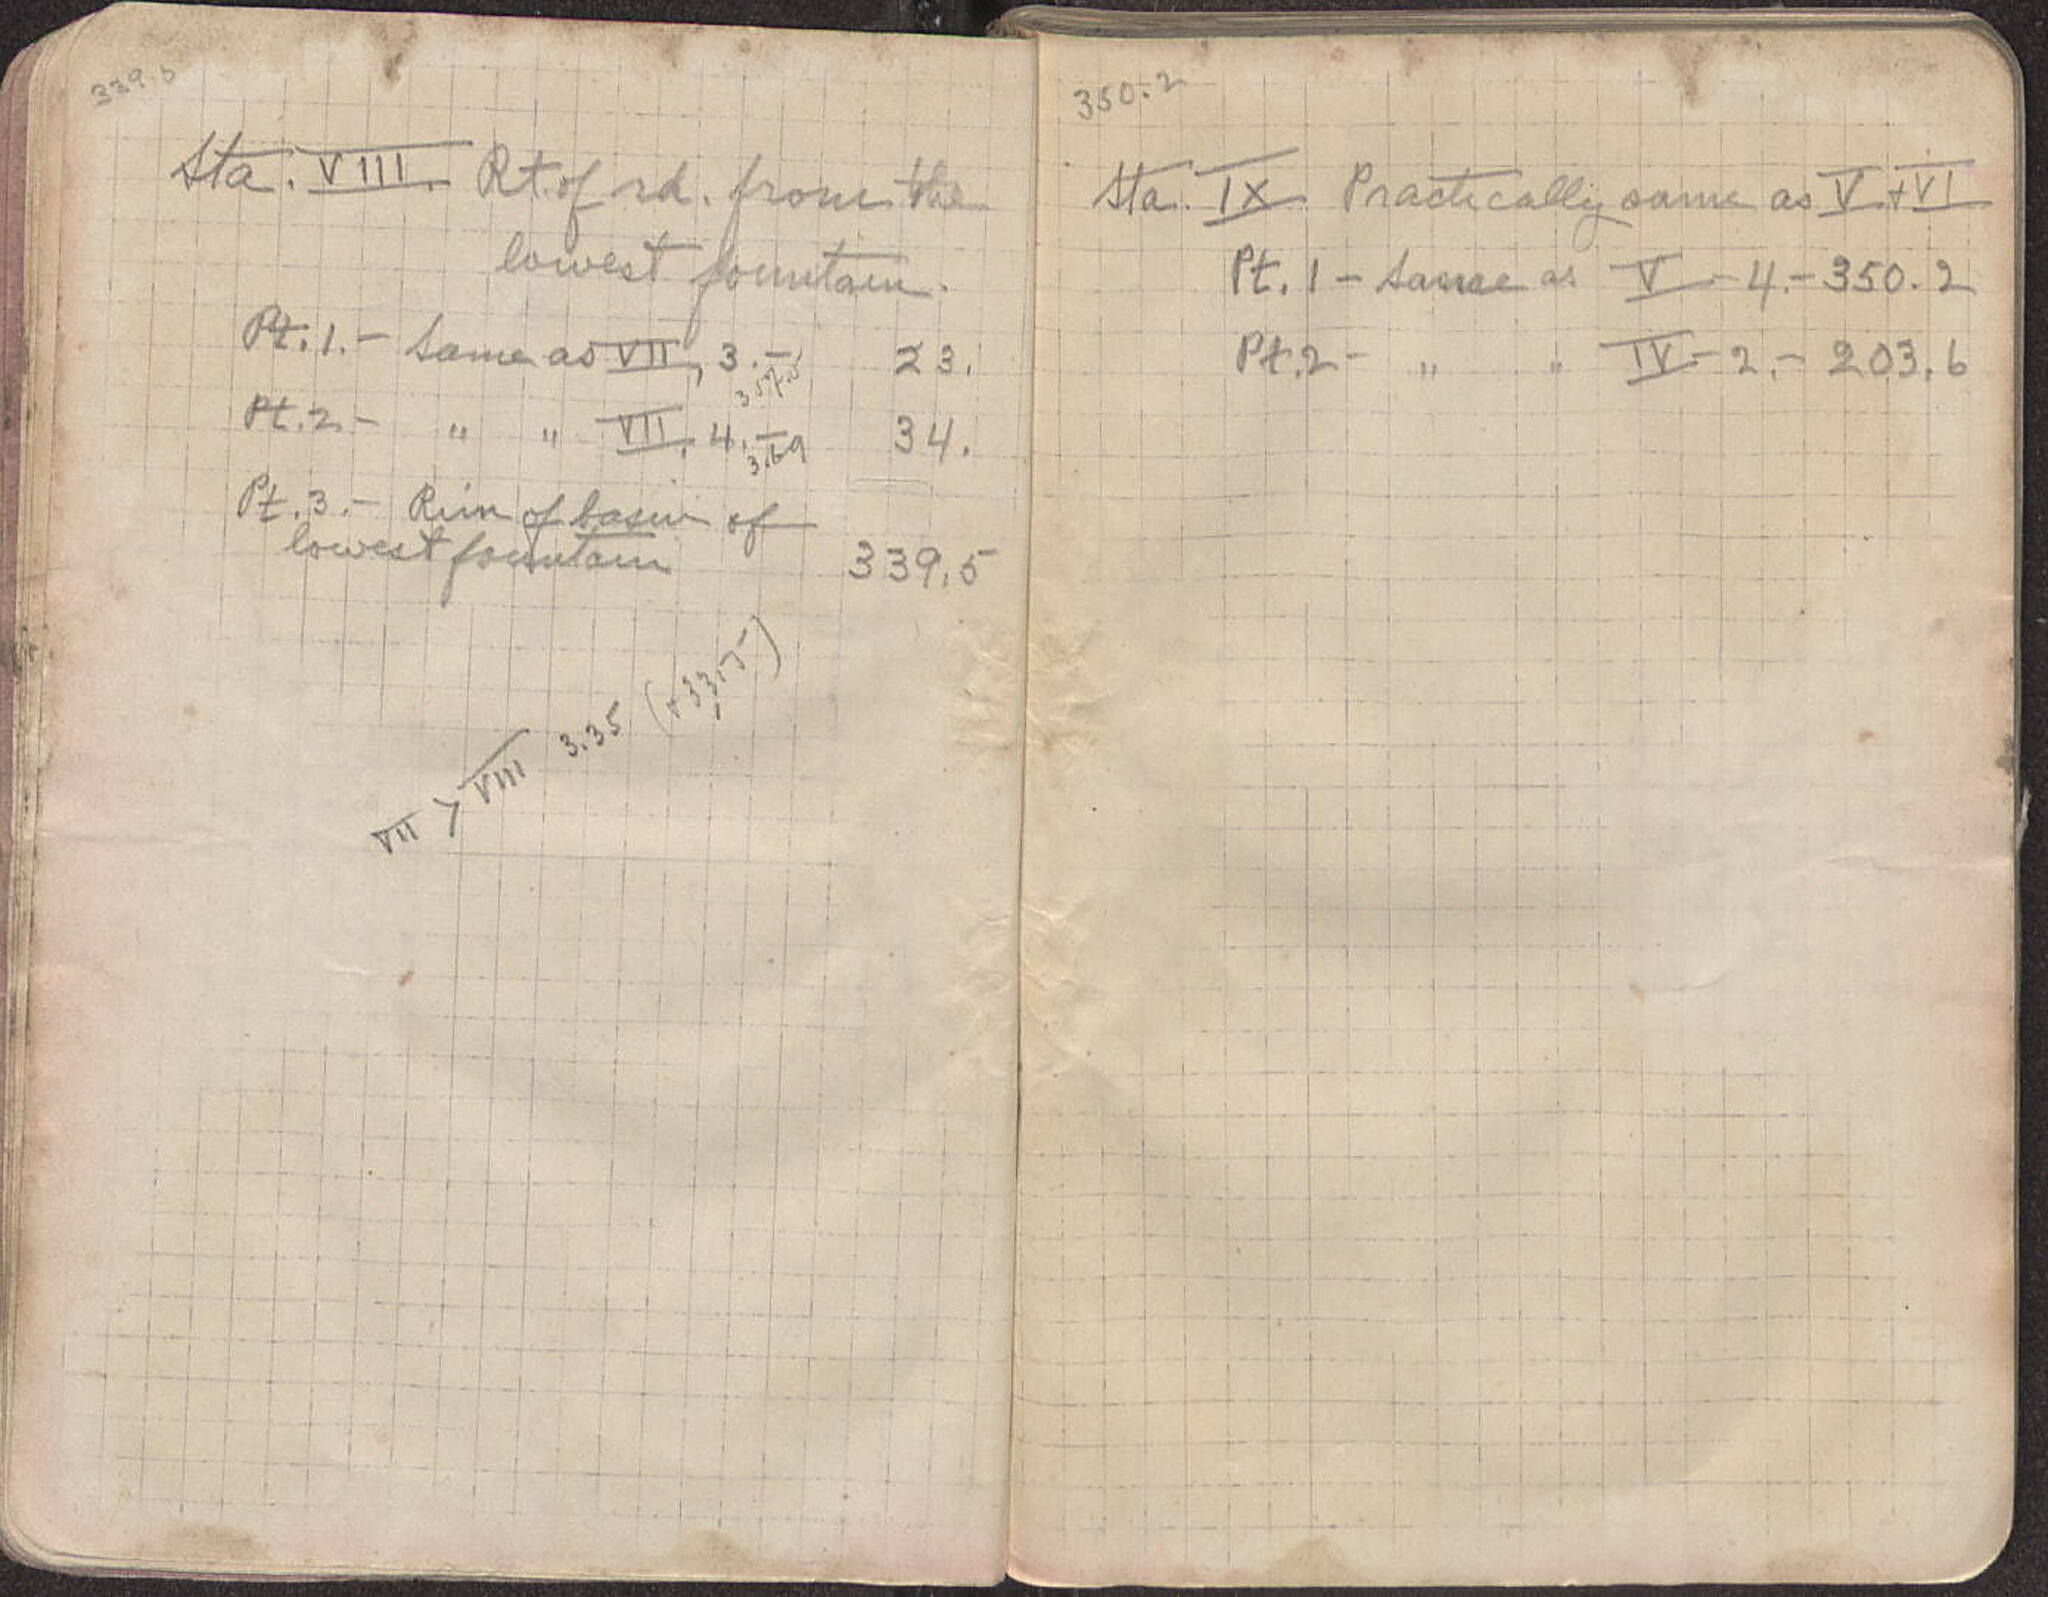 339.5
Sta. VIII. Rt. of rd. from the
lowest fountain.
Pt. 1. - Same as VII, 3. - 23.
357.5
Pt. 2 - " " VII, 4. - 34.
3.69
Pt. 3. - Rim of basin of
lowest fountain 339.5
VII > VIII 3.35 (+33.75)
350.2
Sta. IX. Practically same as V + VI
Pt. 1 - Same as V - 4. - 350.2
Pt. 2 - " " IV - 2. - 203.6